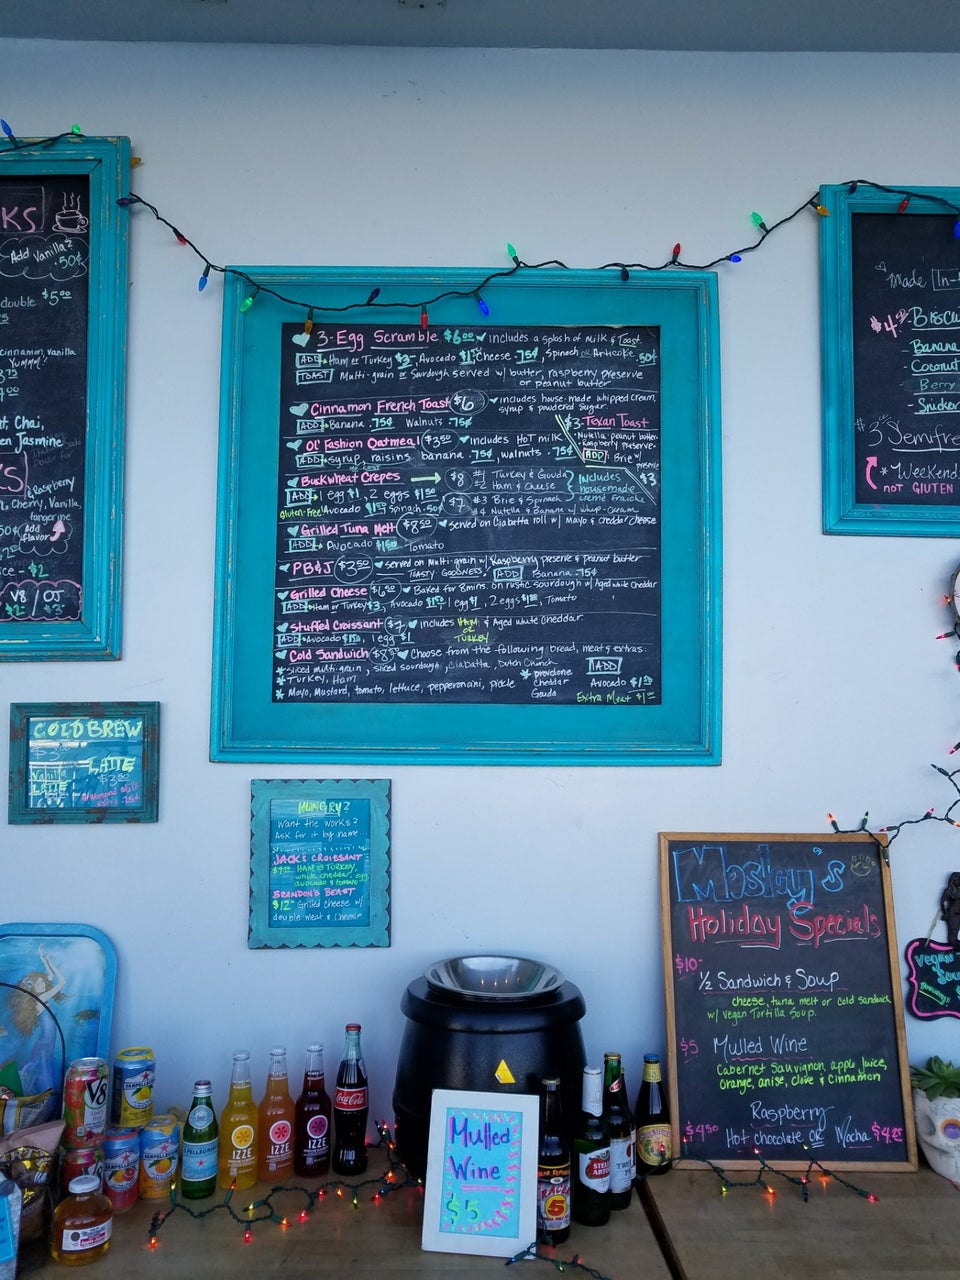 KS
Add Vanilla?
.50¢
double $5.00
cinnamon, vanilla
Yummy!
t Chai,
en Jasmine
Raspberry
Cherry, Vanilla,
tangerine
Add
flavor
$2
V8 OJ
$2 $3
3-Egg Scramble $6.00 includes a splash of milk & Toast
ADD Ham or Turkey $3 Avocado $1.50 Cheese .75¢ Spinach or Artichoke .50¢
TOAST Multi-grain or Sourdough served w/ butter, raspberry preserve
or peanut butter
Cinnamon French Toast $6 includes house-made whipped cream,
syrup & powdered sugar.
ADD Banana .75¢ Walnuts .75¢
$3- Texan Toast
Nutella, peanut butter
Raspberry preserve
ADD Brie w/ preserve $3
Ol' Fashion Oatmeal $3.50 includes Hot milk
ADD syrup, raisins banana .75¢, walnuts .75¢
Buckwheat Crepes $8 #1 Turkey & Gouda
#2 Ham & Cheese
includes housemade creme fraiche
ADD 1 egg $1, 2 eggs $1.50 $7 #3 Brie & Spinach
Gluten-Free! Avocado $1.50 Spinach .50¢ #4 Nutella & Banana w/ whip-cream
Grilled Tuna Melt $8.50 served on Ciabatta roll w/ Mayo & Cheddar Cheese
ADD Avocado $1.50 Tomato
PB&J $3.50 served on Multi-grain w/ Raspberry preserve & peanut butter
Toasty Goodness! ADD Banana .75¢
Grilled Cheese $6.50 Baked for 8mins. on rustic sourdough w/ Aged white Cheddar
ADD Ham or Turkey $3, Avocado $1.50 1 egg $1, 2 eggs $1.50, Tomato
Stuffed Croissant $7 includes Ham or Turkey & Aged white Cheddar
ADD Avocado $1.50, 1 egg $1
Cold Sandwich $8.50 Choose from the following bread, meat & extras:
sliced multi-grain, sliced sourdough, Ciabatta, Dutch Crunch
Turkey, Ham
Mayo, Mustard, tomato, lettuce, pepperoncini, pickle
provolone
Cheddar
Gouda
ADD
Avocado $1.50
Extra Meat $1.50
Made In-
$4 Biscu
- Banana
- Coconut
Berry
- Snicker
$3 Semifre
*Weekend
NOT GLUTEN
COLD BREW
$3
Vanilla LATTE
LATTE
$3.50
Almond Milk
extra .75¢
HUNGRY?
Want the Works?
Ask for it by name...
JACK'S CROISSANT
HAM or TURKEY,
white cheddar, egg,
avocado & tomato
BRANDON'S BEAST
$12 Grilled cheese w/
double meat & Cheese
Mosley's
Holiday Specials
$10-
1/2 Sandwich & Soup
cheese, tuna melt or cold sandwich
w/ vegan Tortilla Soup.
$5 Mulled Wine
Cabernet Sauvignon, apple juice,
orange, anise, clove & cinnamon
Raspberry
$4.50 Hot chocolate or Mocha $4.25
VEGAN
Soup
V8
SANPELLEGRINO
SANPELLEGRINO
SANPELLEGRINO
S.PELLEGRINO
IZZE
IZZE
IZZE
Coca-Cola
Mulled
Wine
$5
BEAR REPUBLIC
RACER
5
STELLA
ARTOIS